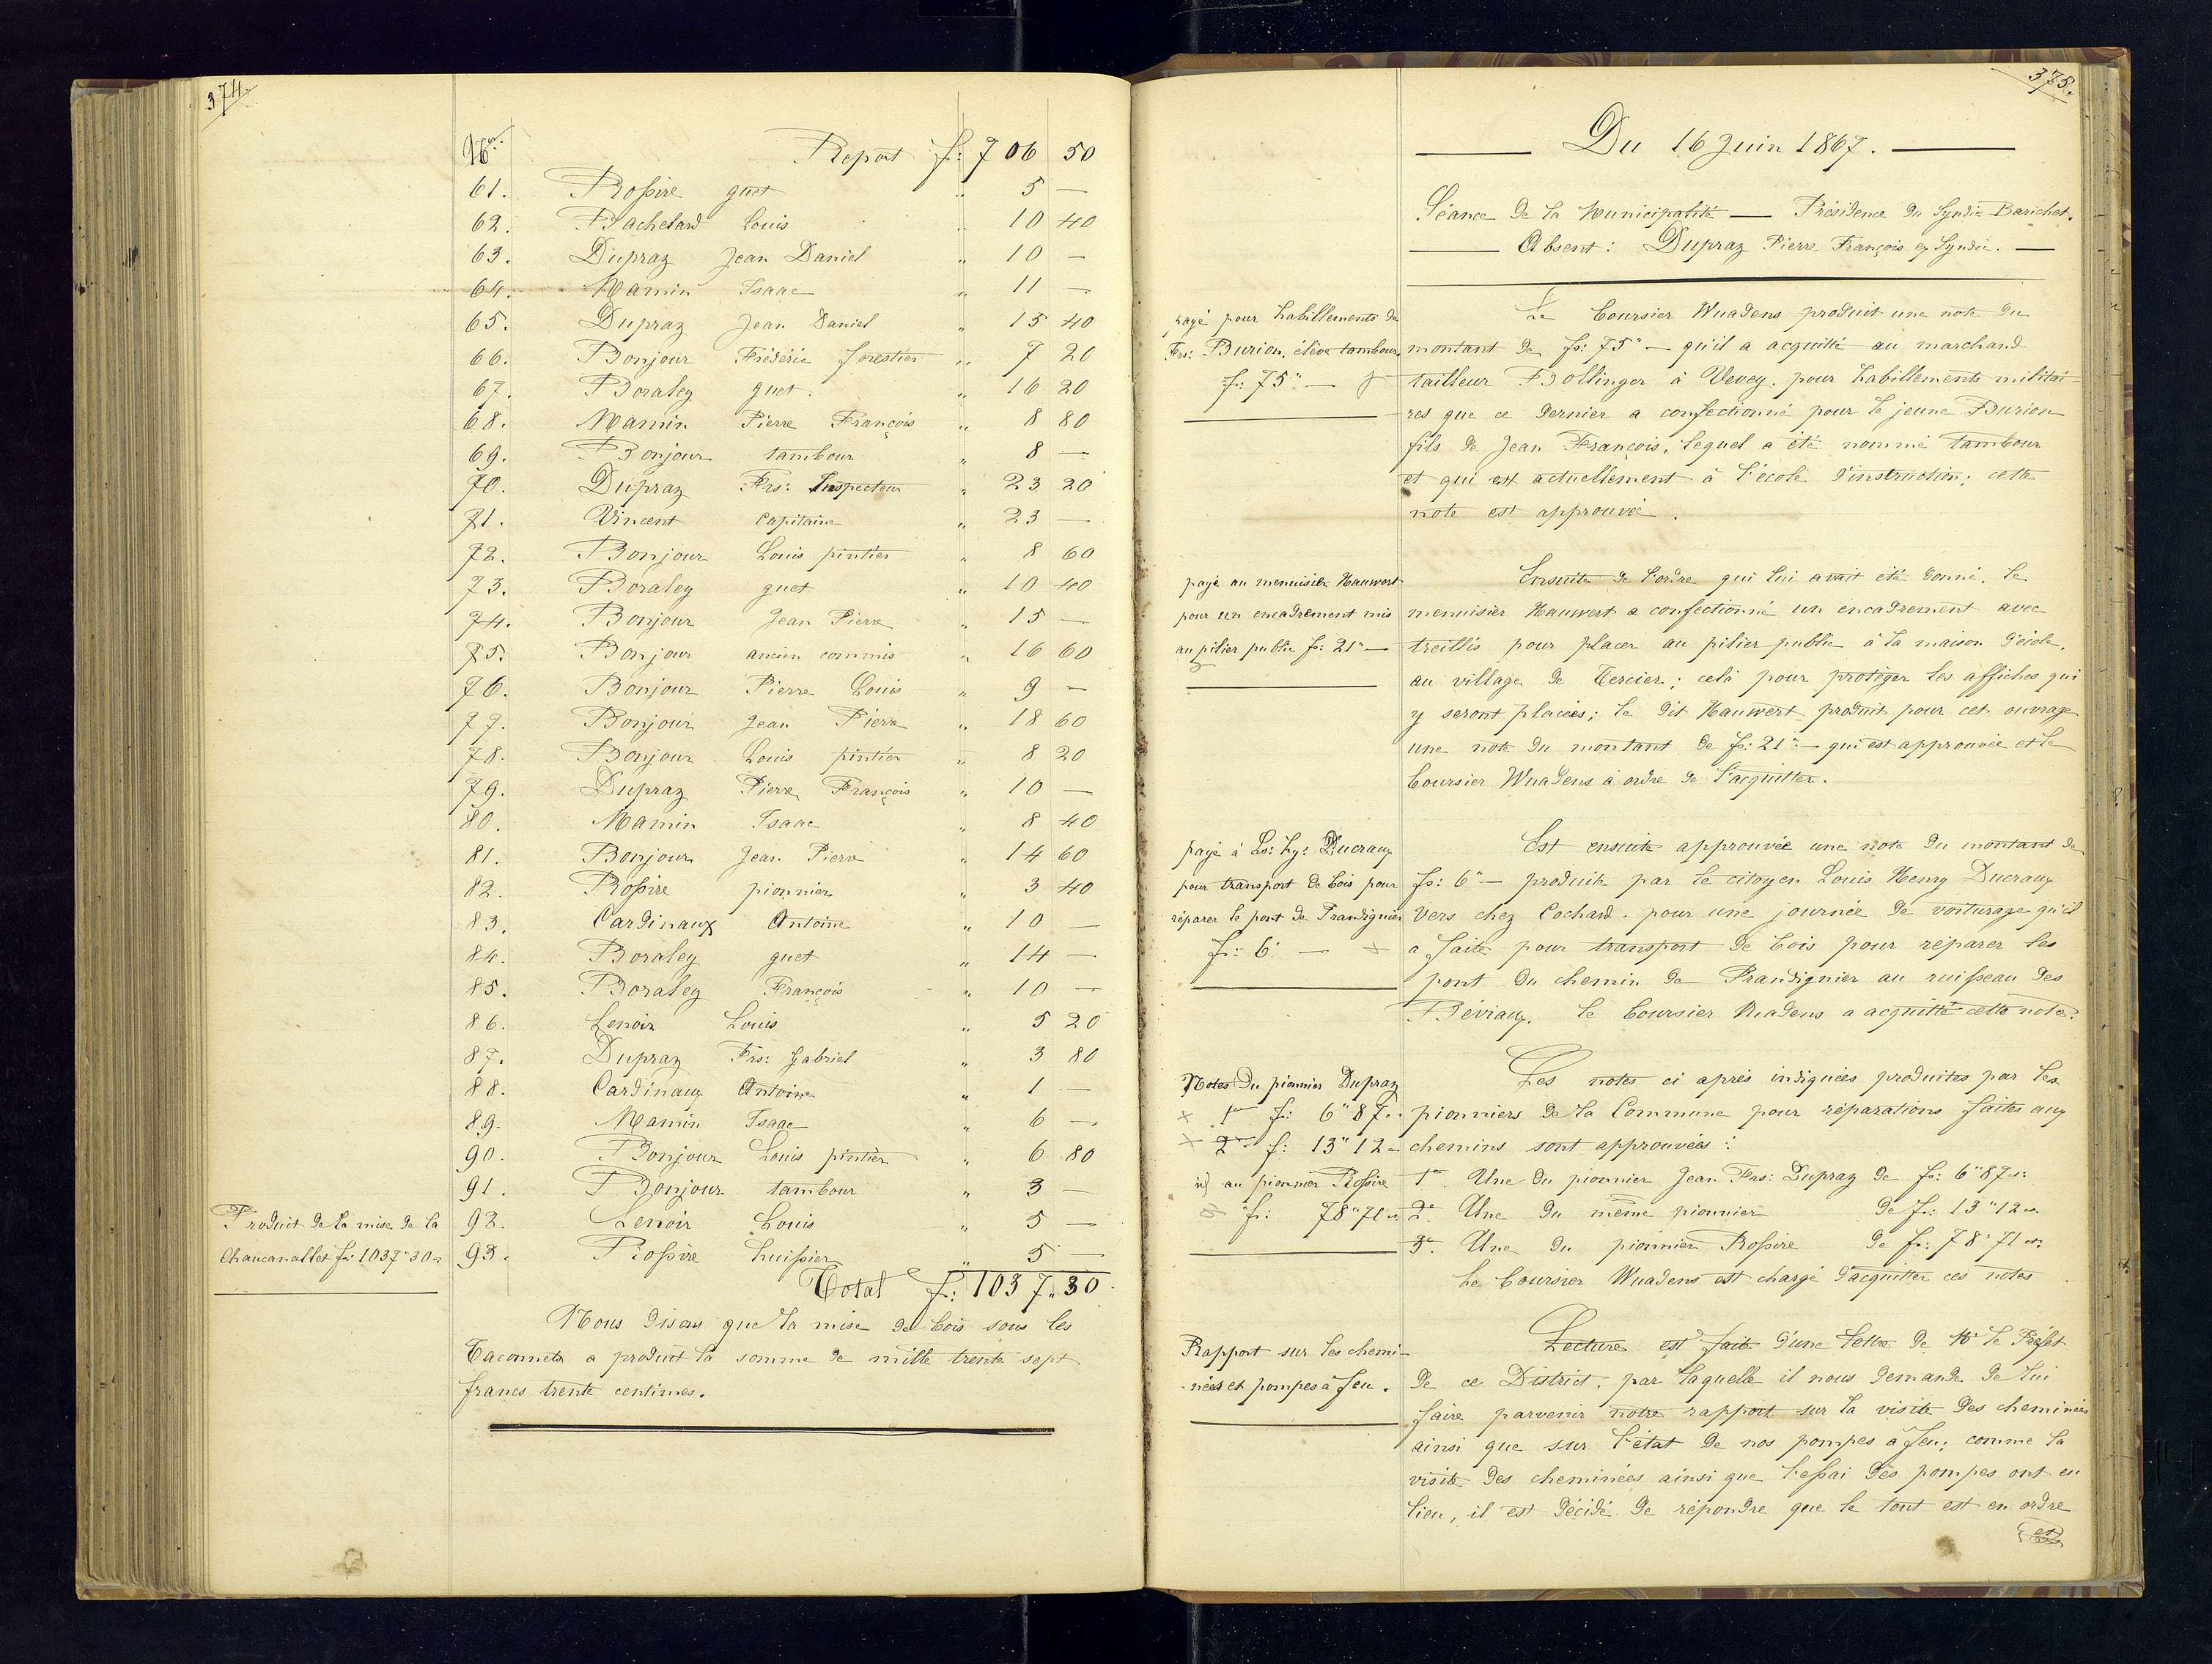 374.
Nos. Report f: 706 50
61. Rossire guet " 5 —
62. Bachelard Louis " 10 40
63. Dupraz Jean Daniel " 10 —
64. Mamin Isaac " 11 —
65. Dupraz Jean Daniel " 15 40
66. Bonjour Frédéric forestier " 7 20
67. Boraley guet. " 16 20
68. Mamin Pierre François " 8 80
69. Bonjour tambour " 8 —
70. Dupraz Frs: Inspecteur " 23 20
71. Vincent Capitaine " 23 —
72. Bonjour Louis pintier " 8 60
73. Boraley guet " 10 40
74. Bonjour Jean Pierre " 15 —
75. Bonjour ancien commis " 16 60
76. Bonjour Pierre Louis " 9 —
77. Bonjour Jean Pierre " 18 60
78. Bonjour Louis pintier " 8 20
79. Dupraz Pierre François " 10 —
80. Mamin Isaac " 8 40
81. Bonjour Jean Pierre " 14 60
82. Rossire pionnier " 3 40
83. Cardinaux Antoine " 10 —
84. Boraley guet " 14 —
85. Boraley François " 10 —
86. Lenoir Louis " 5 20
87. Dupraz Frs: Gabriel " 3 80
88. Cardinaux Antoine " 1 —
89. Mamin Isaac " 6 —
90. Bonjour Louis pintier " 6 80
91. Bonjour tambour " 3 —
92. Lenoir Louis " 5 —
93. Rossire huissier " 5 —
Produit de la mise de la
Chaucanallet fr: 1037"30
Total f: 1037"30
Nous disons que la mise de bois sous les
Taconnets a produit la somme de mille trente sept
francs trente centimes.
375.
Du 16 Juin 1867.
Séance de la Municipalité — Présidence du Syndic Barichet.
Absent: Dupraz Pierre François ex Syndic.
payé pour habillements de
Frs: Burion, élève tambour,
f: 75" —
Le boursier Wuadens produit une note du
montant de fr: 75" — qu'il a acquitté au marchand
tailleur Bollinger à Vevey, pour habillements militai-
res que ce dernier a confectionné pour le jeune Burion
fils de Jean François, lequel a été nommé tambour
et qui est actuellement à l'école d'instruction; cette
note est approuvée.
payé au menuisier Hauwert
pour un encadrement mis
au pilier public fr: 21" —
Ensuite de l'ordre qui lui avait été donné, le
menuisier Hauwert a confectionné un encadrement avec
treillis pour placer au pilier public à la maison d'école,
au village de Tercier; celà pour protéger les affiches qui
y seront placées; le dit Hauwert produit pour cet ouvrage
une note du montant de fr: 21" — qui est approuvée et le
boursier Wuadens a ordre de l'acquitter.
payé à Ls: Hy: Ducraux
pour transport de bois pour
réparer le pont de Prandignier
fr: 6 —
Est ensuite approuvée une note du montant de
fr: 6" — produite par le citoyen Louis Henry Ducraux
vers chez Cochard, pour une journée de voiturage qu'il
a faite pour transport de bois pour réparer les
pont du chemin de Prandignier au ruisseau des
Béviaux. le boursier Wuadens a acquitté cette note.
Notes du pionnier Dupraz
1re f: 6"87
2e f: 13"12
id au pionnier Rossire
fr: 78"71
Les notes ci après indiquées produites par les
pionniers de la Commune pour réparations faites aux
chemins sont approuvées:
1re. Une du pionnier Jean Frs: Dupraz de fr: 6"87
2e. Une du même pionnier de fr: 13"12
3e. Une du pionnier Rossire de fr: 78"71
Le boursier Wuadens est chargé d'acquitter ces notes
Rapport sur les chemi-
-nées et pompes à feu.
Lecture est faite d'une lettre de Mr le Préfet
de ce District, par laquelle il nous demande de lui
faire parvenir notre rapport sur la visite des cheminées
ainsi que sur l'état de nos pompes à feu; comme la
visite des cheminées ainsi que l'essai des pompes ont eu
lieu, il est décidé de répondre que le tout est en ordre
et